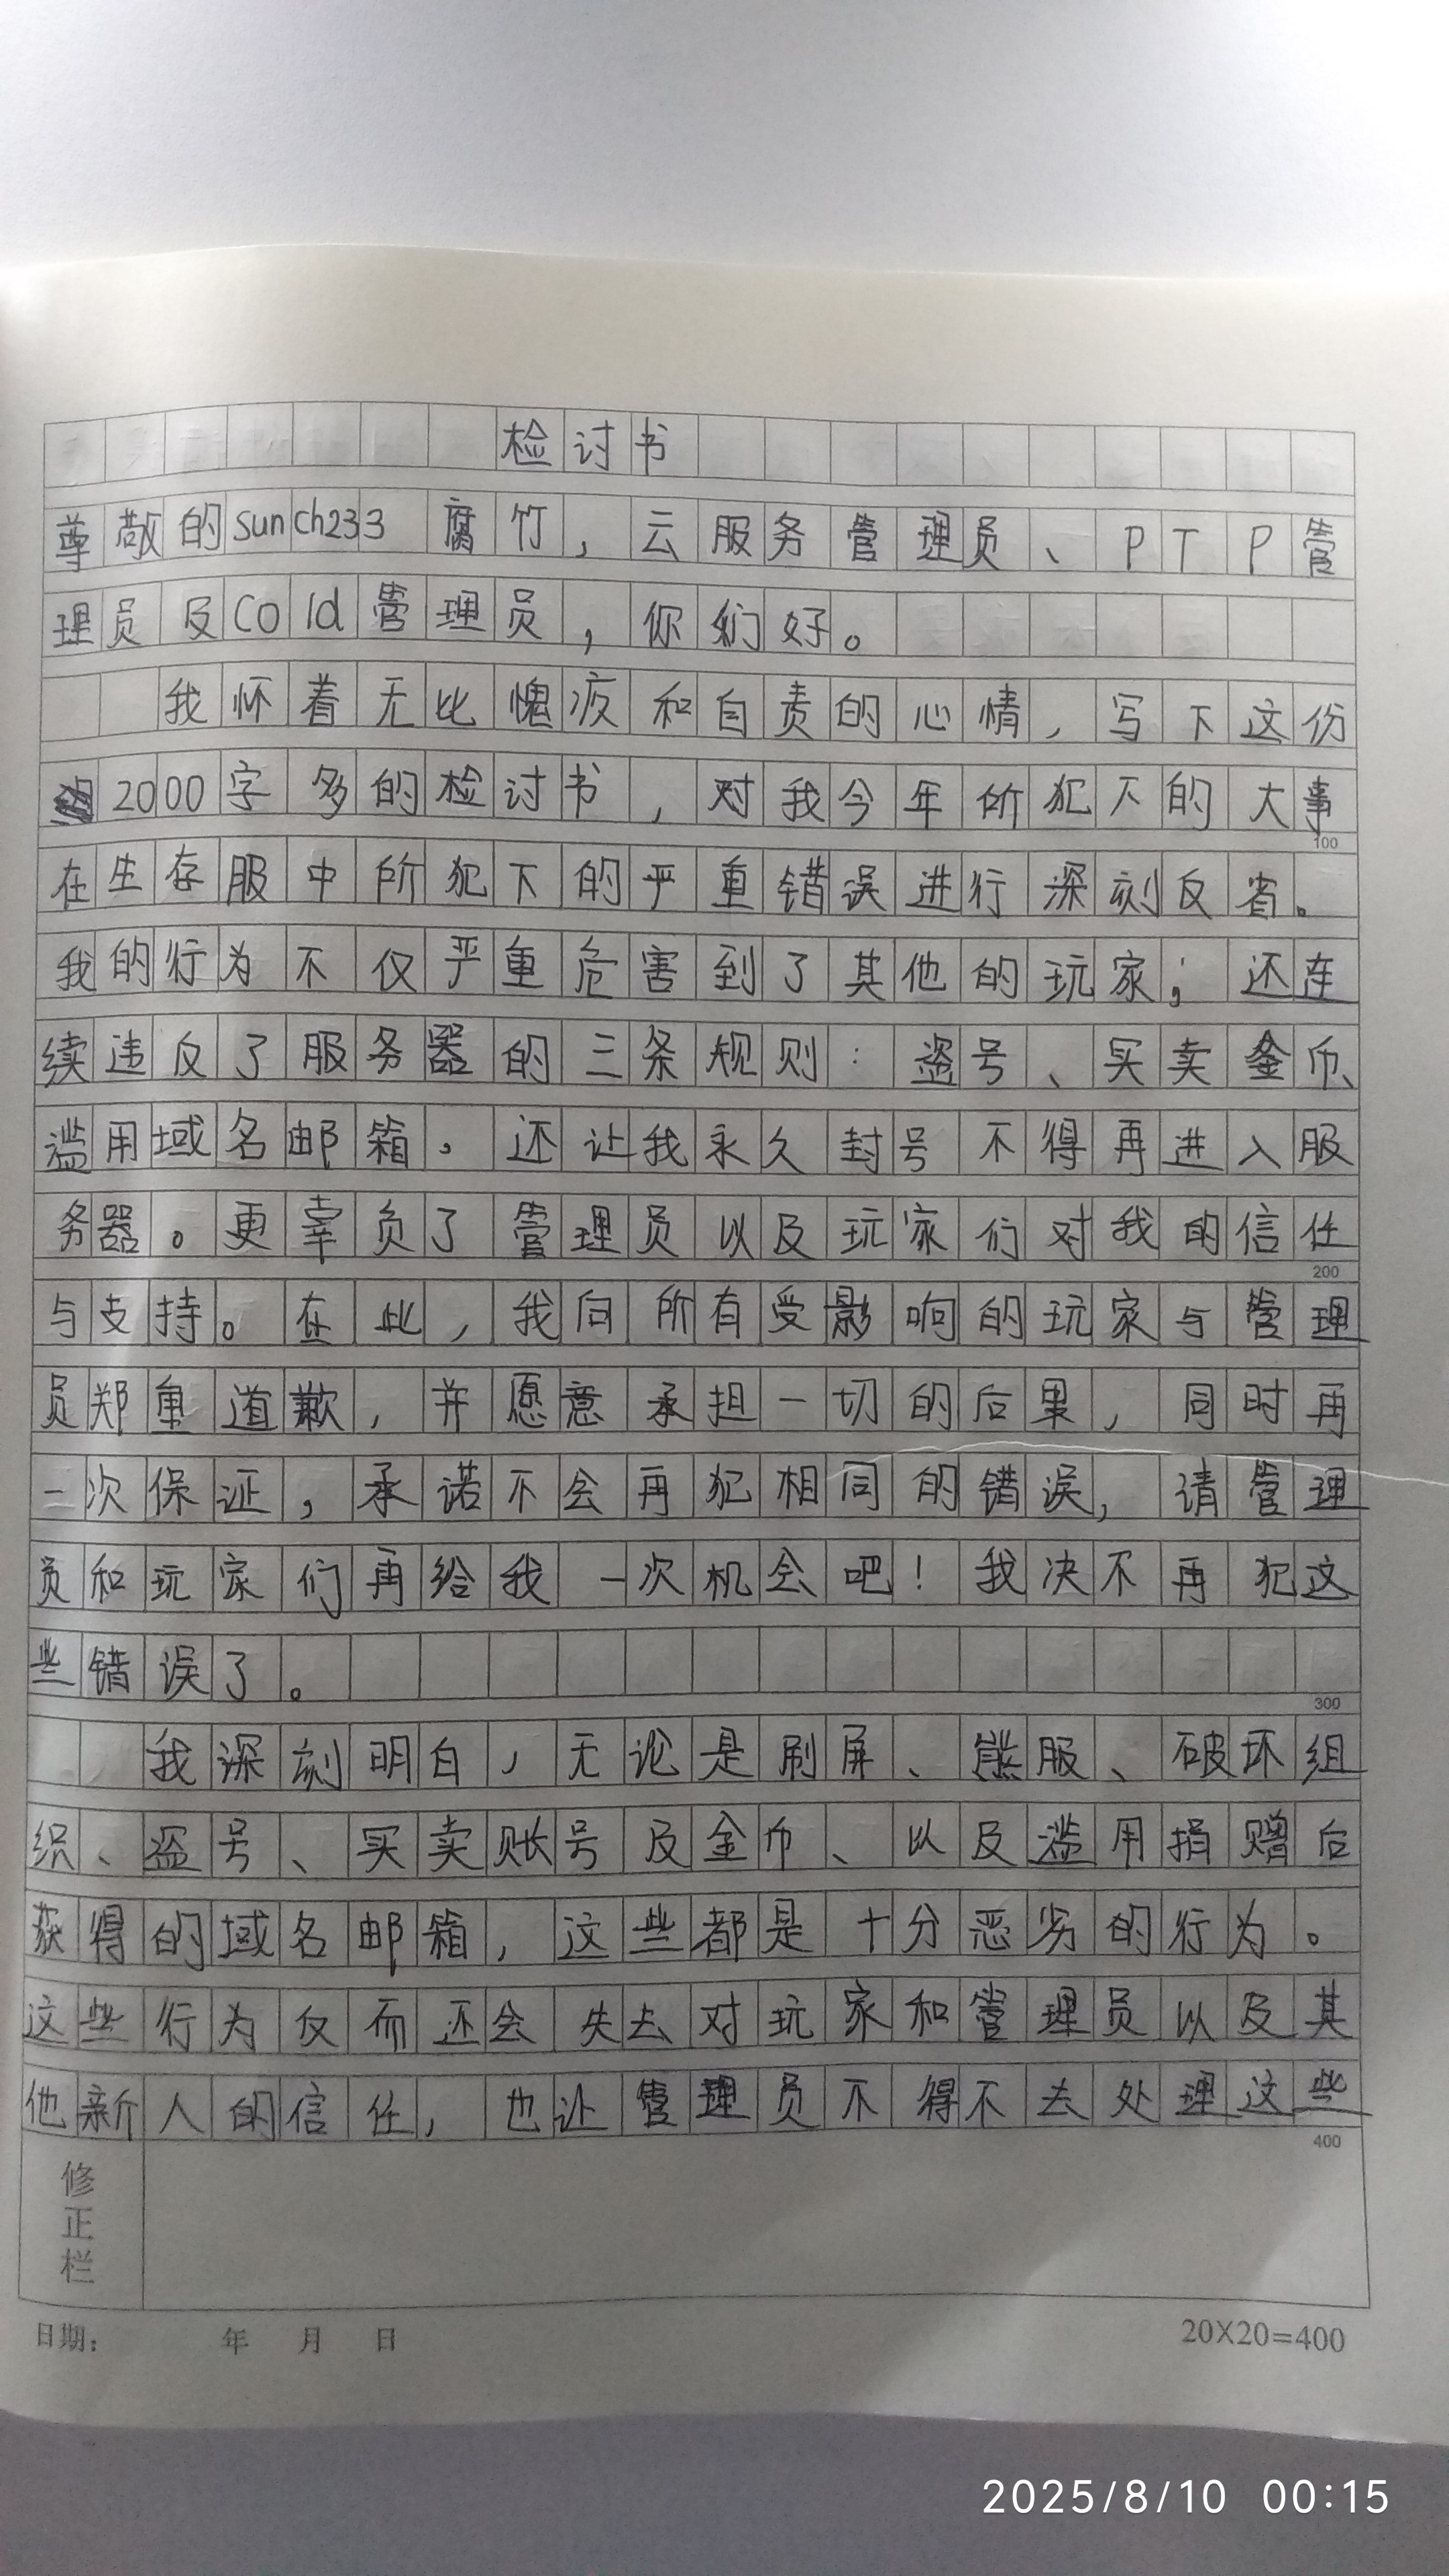 检讨书
尊敬的sunch233 腐竹，云服务管理员、PTP管
理员及Cold管理员，你们好。
我怀着无比愧疚和自责的心情，写下这份
2000字多的检讨书，对我今年所犯下的大事
在生存服中所犯下的严重错误进行深刻反省。
我的行为不仅严重危害到了其他的玩家；还连
续违反了服务器的三条规则：盗号、买卖金币、
滥用域名邮箱。还让我永久封号不得再进入服
务器。更辜负了管理员以及玩家们对我的信任
200
与支持。在此，我向所有受影响的玩家与管理
员郑重道歉，并愿意承担一切的后果，同时再
一次保证，承诺不会再犯相同的错误，请管理
员和玩家们再给我一次机会吧！我决不再犯这
些错误了。
300
我深刻明白，无论是刷屏、熊服、破坏组
织、盗号、买卖账号及金币、以及滥用捐赠后
获得的域名邮箱，这些都是十分恶劣的行为。
这些行为反而还会失去对玩家和管理员以及其
他新人的信任，也让管理员不得不去处理这些
400
修正栏
日期： 年 月 日
20X20=400
2025/8/10 00:15